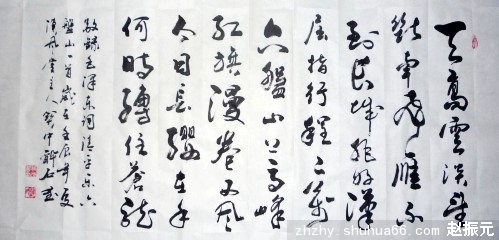 天高雲淡望
斷南飛雁不
到長城非好漢
屈指行程二萬
六盤山上高峰
紅旗漫卷西風
今日長纓在手
何時縛住蒼龍
敬錄毛澤東詞清平樂六
盤山一首歲在壬辰年夏
堂主人
zhzhy.shuhua66.com 赵振元